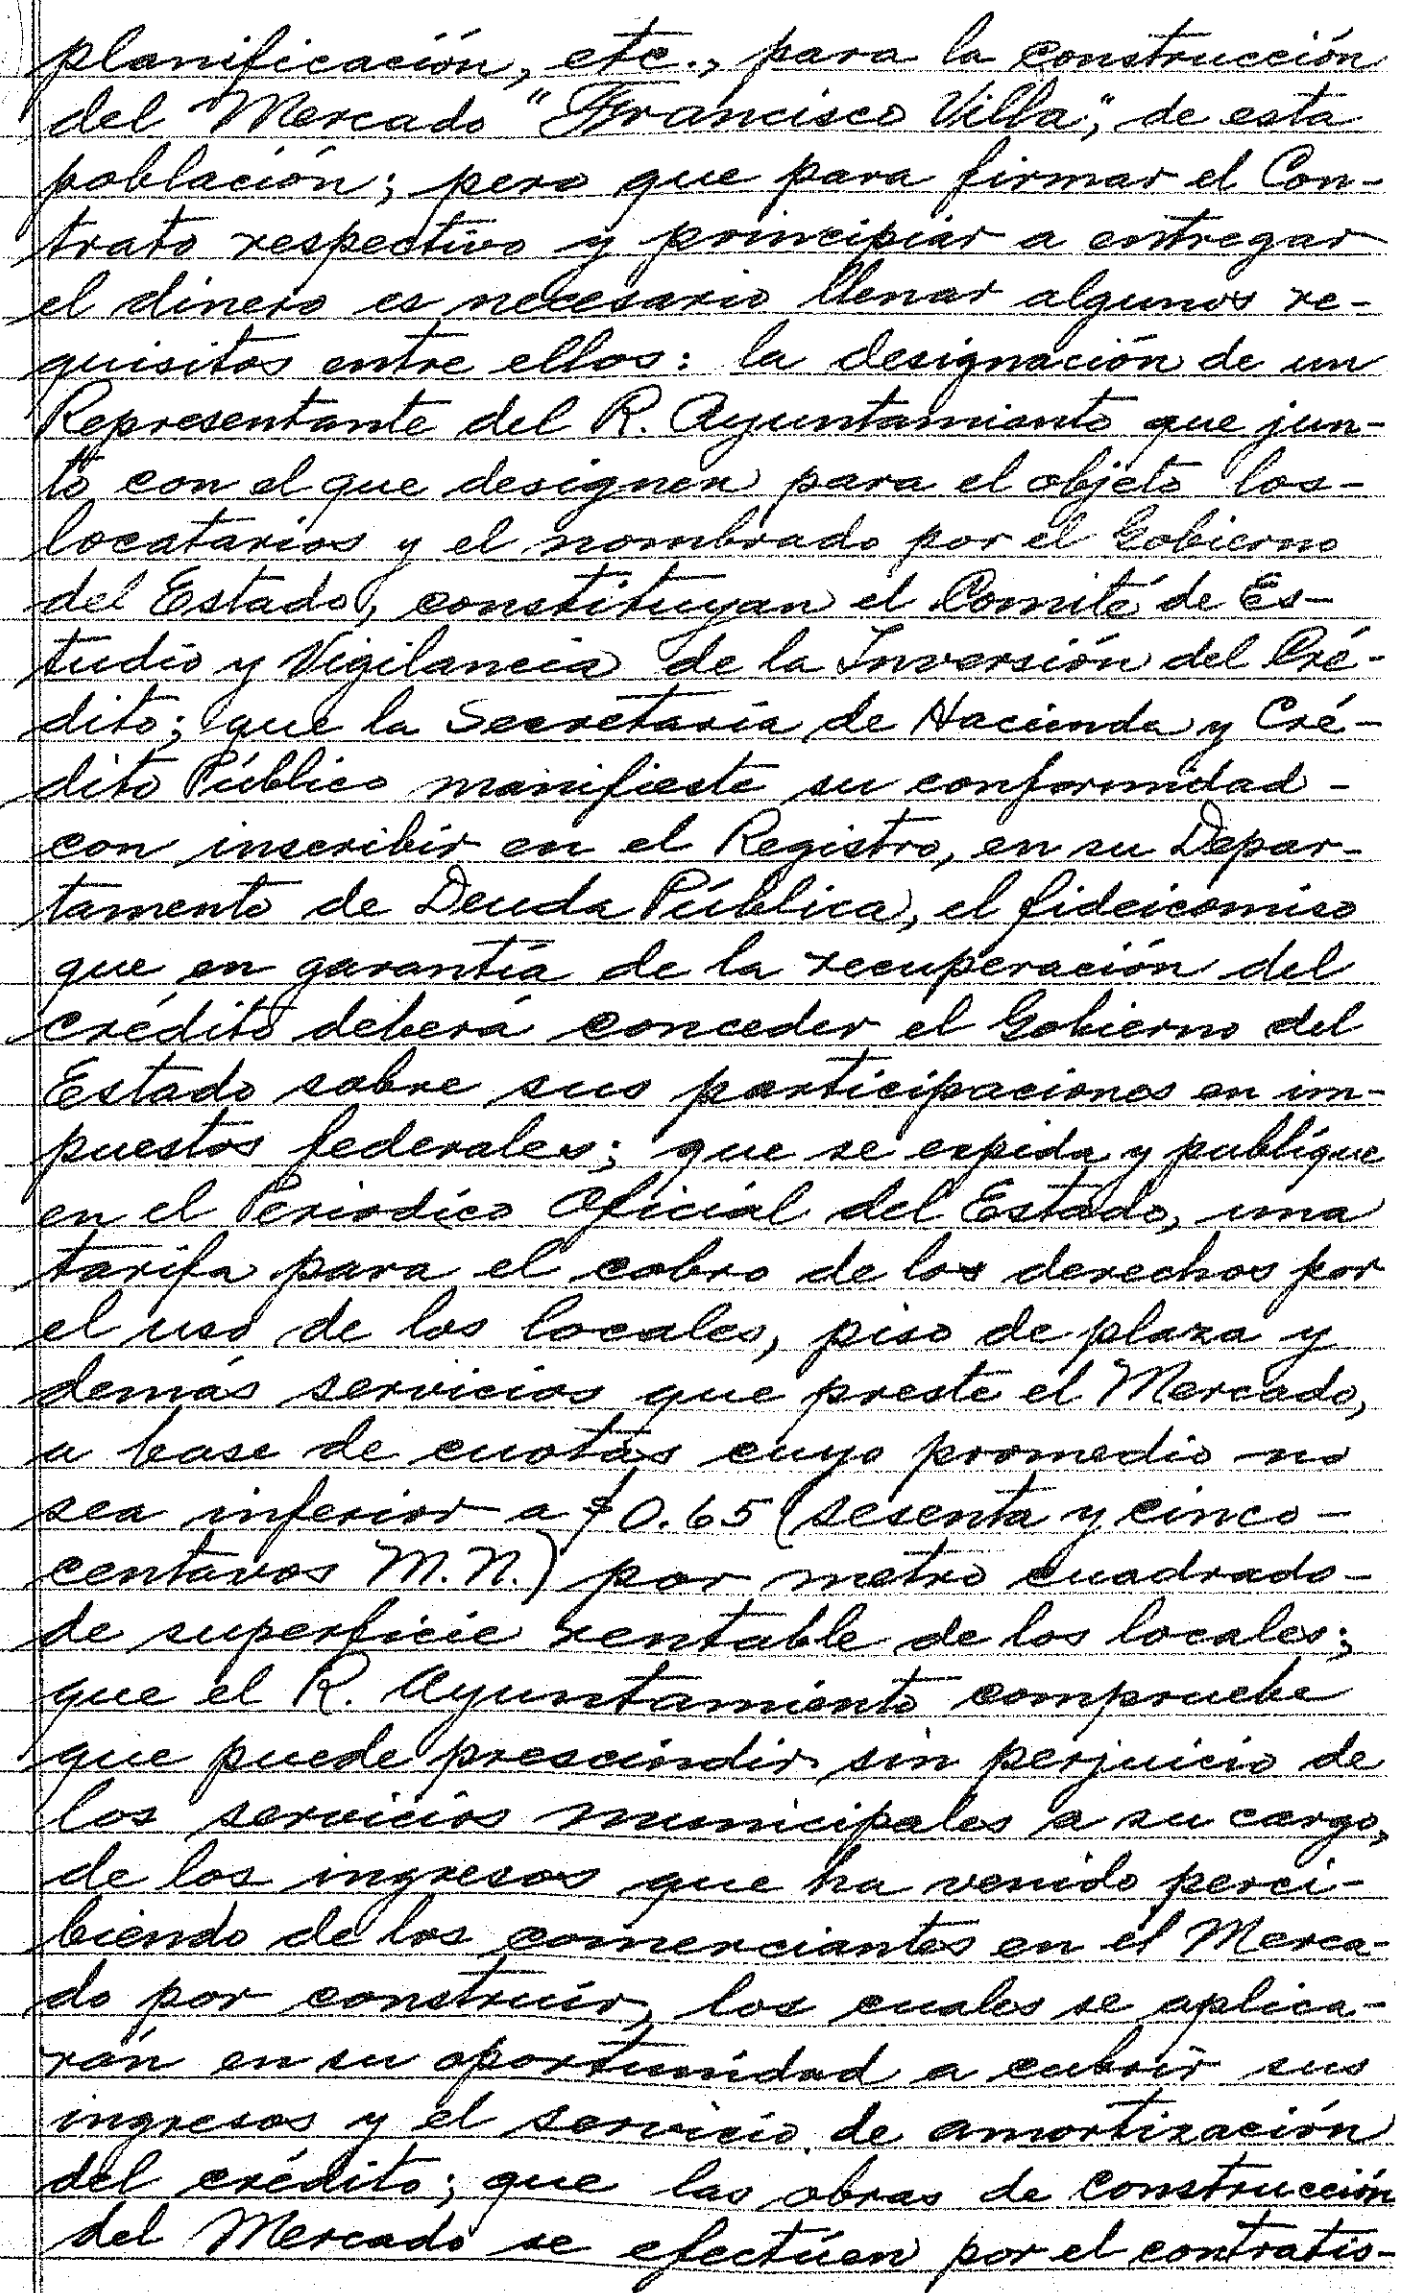 planificación, etc., para la construcción
del Mercado "Francisco Villa", de esta
población; pero que para firmar el Con-
trato respectivo y principiar a entregar
el dinero es necesario llenar algunos re-
quisitos entre ellos: la designación de un
Representante del R. Ayuntamiento que jun-
to con el que designen para el objeto los-
locatarios y el nombrado por el Gobierno
del Estado, constituyan el Comité de Es-
tudio y Vigilancia de la Inversión del Cré-
dito; que la Secretaría de Hacienda y Cré-
dito Público manifieste su conformidad-
con inscribir en el Registro, en su Depar-
tamento de Deuda Pública, el fideicomiso
que en garantía de la recuperación del
crédito deberá conceder el Gobierno del
Estado sobre sus participaciones en im-
puestos federales; que se expida y publíque
en el Periodíco Oficial del Estado, una
tarifa para el cobro de los derechos por
el uso de los locales, piso de plaza y
demás servicios que preste el Mercado,
a base de cuotas cuyo promedio no
sea inferior a $0.65 (sesenta y cinco-
centavos M.N.) por metro cuadrado-
de superficie rentable de los locales;
que el R. Ayuntamiento compruebe
que puede prescindir sin perjuicio de
los servicios municipales a su cargo,
de los ingresos que ha venido perci-
biendo de los comerciantes en el Merca-
do por construír, los cuales se aplica-
rán en su oportunidad a cubrir sus
ingresos y el servicio de amortización
del crédito; que las obras de construcción
del Mercado se efectúen por el contratis-